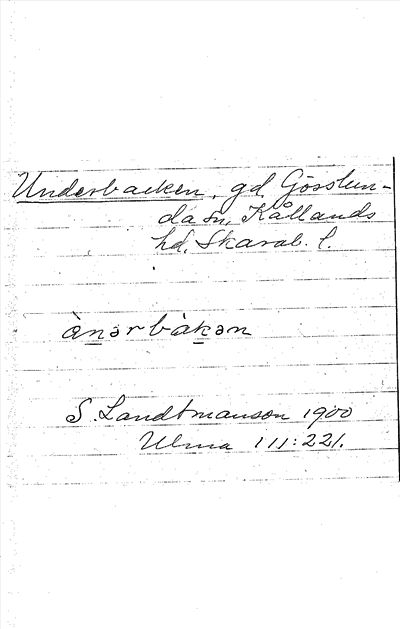 Underbacken, gd, Gösslun-
da sn, Kållands
hd, Skarab. l.
ànərbàkən
S. Landtmanson 1900
Ulma 111:221.